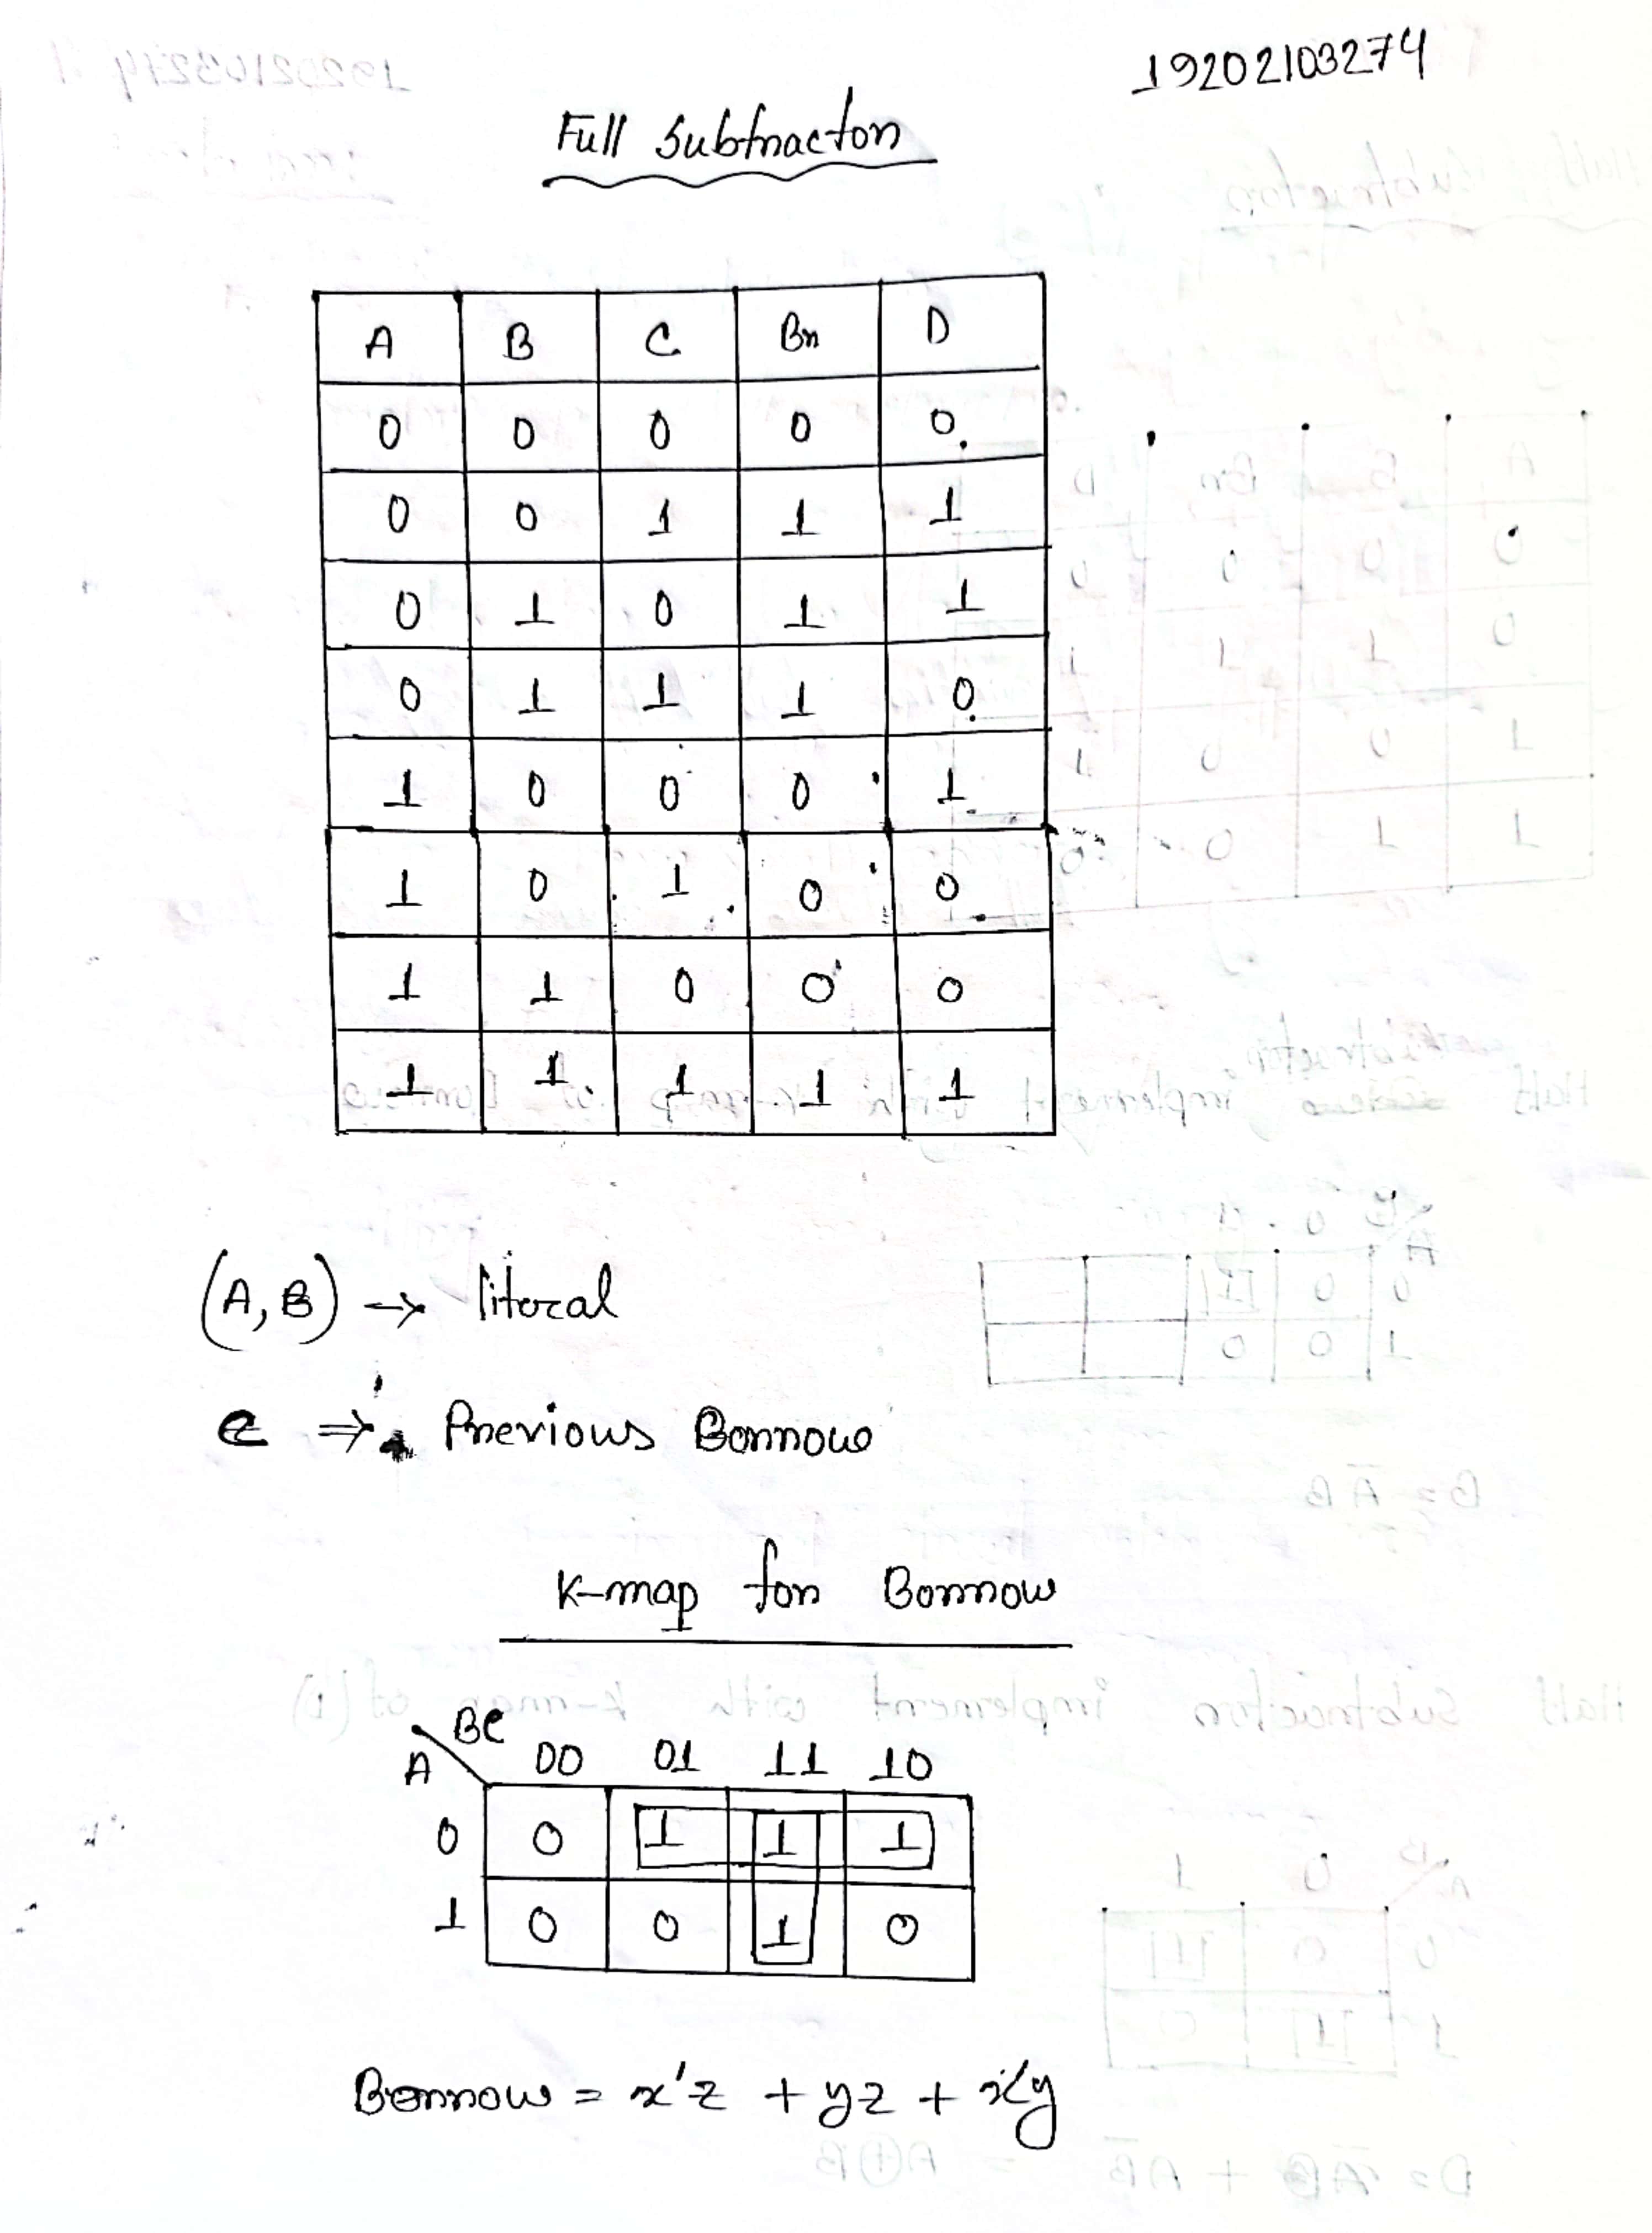 19202103274
Full Subtractor
A B C Br D
0 0 0 0 0
0 0 1 1 1
0 1 0 1 1
0 1 1 1 0
1 0 0 0 1
1 0 1 0 0
1 1 0 0 0
1 1 1 1 1
(A, B) → literal
C ⇒ Previous Borrow
K-map for Borrow
BC
A 00 01 11 10
0 0 1 1 1
1 0 0 1 0
Borrow = x'z + yz + x'y